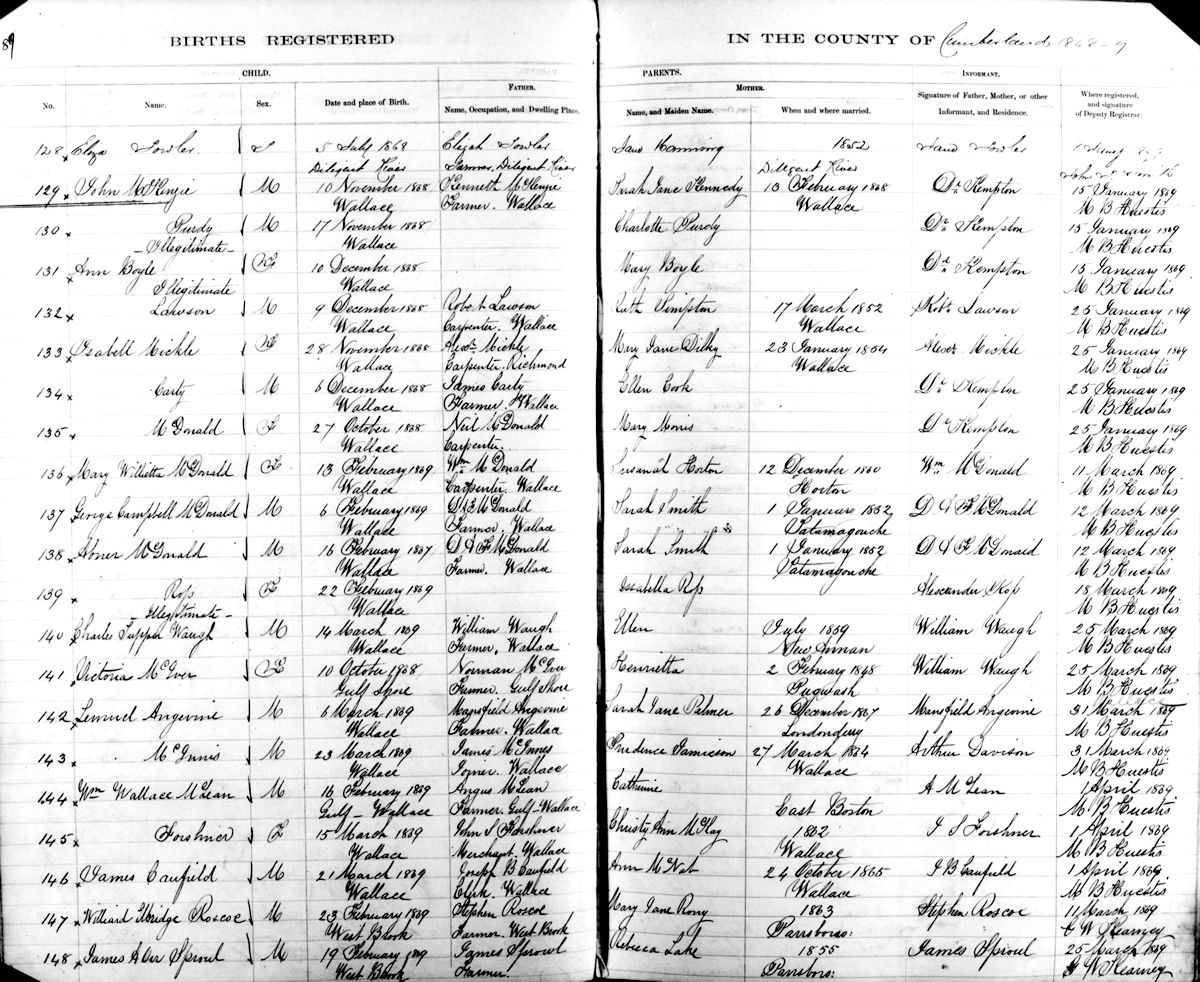 89
BIRTHS REGISTERED IN THE COUNTY OF Cumberland 1868-9
CHILD. PARENTS. INFORMANT.
FATHER. MOTHER.
No. Name. Sex. Date and place of Birth. Name, Occupation, and Dwelling Place. Name, and Maiden Name. When and where married. Signature of Father, Mother, or other Informant, and Residence. Where registered, and signature of Deputy Registrar.
128 Eliza Fowler. F 5 July 1868 Elijah Fowler Jane Hanning 1852 Jane Fowler
Diligent River Farmer, Diligent River Diligent River
129 John McKenzie M 10 November 1868 Kenneth McKenzie Sarah Jane Kennedy 13 February 1868 Dr. Kempton 15 January 1869
Wallace Farmer. Wallace Wallace M B Huestis
130 Purdy M 17 November 1868 Charlotte Purdy Dr. Kempton 15 January 1869
- Illegitimate - Wallace M B Huestis
131 Ann Boyle F 10 December 1868 Mary Boyle Dr. Kempton 15 January 1869
Illegitimate Wallace M B Huestis
132 Lawson M 9 December 1868 Robert Lawson Ruth Simpson 17 March 1852 Robt. Lawson 25 January 1869
Wallace Carpenter. Wallace Wallace M B Huestis
133 Isabell Mickle F 28 November 1868 Alexr. Mickle Mary Jane Dilky 23 January 1854 Alexr Mickle 25 January 1869
Wallace Carpenter. Richmond Wallace M B Huestis
134 Carty M 6 December 1868 James Carty Ellen Cook Dr Kempton 25 January 1869
Wallace Farmer Wallace M B Huestis
135 McDonald F 27 October 1868 Neil McDonald Mary Morris Dr Kempton 25 January 1869
Wallace Carpenter. M B Huestis
136 Mary Willietta McDonald F 13 February 1869 Wm. McDonald Susanah Horton 12 December 1860 Wm. McDonald 11 March 1869
Wallace Carpenter. Wallace Horton M B Huestis
137 George Campbell McDonald M 6 February 1869 D & F McDonald Sarah Smith 1 January 1852 D & F McDonald 12 March 1869
Wallace Farmer, Wallace Tatamagouche M B Huestis
138 Abner McDonald M 16 February 1867 D & F McDonald Sarah Smith 1 January 1852 D & F McDonald 12 March 1869
Wallace Farmer. Wallace Tatamagouche M B Huestis
139 Ross F 22 February 1869 Issabella Ross Alexander Ross 18 March 1869
- Illegitimate - Wallace M B Huestis
140 Charles Tupper Waugh M 14 March 1869 William Waugh Ellen July 1859 William Waugh 25 March 1869
Wallace Farmer. Wallace New Annan M B Huestis
141 Victoria McIver F 10 October 1868 Norman McIver Henrietta 2 February 1848 William Waugh 25 March 1869
Gulf Shore Farmer. Gulf Shore Pugwash M B Huestis
142 Lemuel Angevine M 6 March 1869 Mansfield Angevine Sarah Jane Palmer 26 December 1867 Mansfield Angevine 31 March 1869
Wallace Farmer. Wallace Londonderry M B Huestis
143 McInnis M 23 March 1869 James McInnes Prudence Jamieson 27 March 1864 Arthur Davison 31 March 1869
Wallace Joiner. Wallace Wallace M B Huestis
144 Wm Wallace McLean M 16 February 1869 Angus McLean Catherine A McLean 1 April 1869
Gulf - Wallace Farmer. Gulf - Wallace East Boston M B Huestis
145 Forshner F 15 March 1869 John S Forshner Christy Ann McKay 1862 J S Forshner 1 April 1869
Wallace Merchant, Wallace Wallace M B Huestis
146 James Caufield M 21 March 1869 Joseph B Caufield Ann McNab 24 October 1865 J B Caufield 1 April 1869
Wallace Clerk. Wallace Wallace M B Huestis
147 Williard Elbridge Roscoe M 23 February 1869 Stephen Roscoe Mary Jane 1863 Stephen Roscoe 11 March 1869
West Brook Farmer. West Brook Parrsboro: G W Kearney
148 James A Orr Sproul M 19 February 1869 James Sproul Rebecca Lake 1855 James Sproul 25 March 1869
West Brook Farmer. Parrsboro: G W Kearney